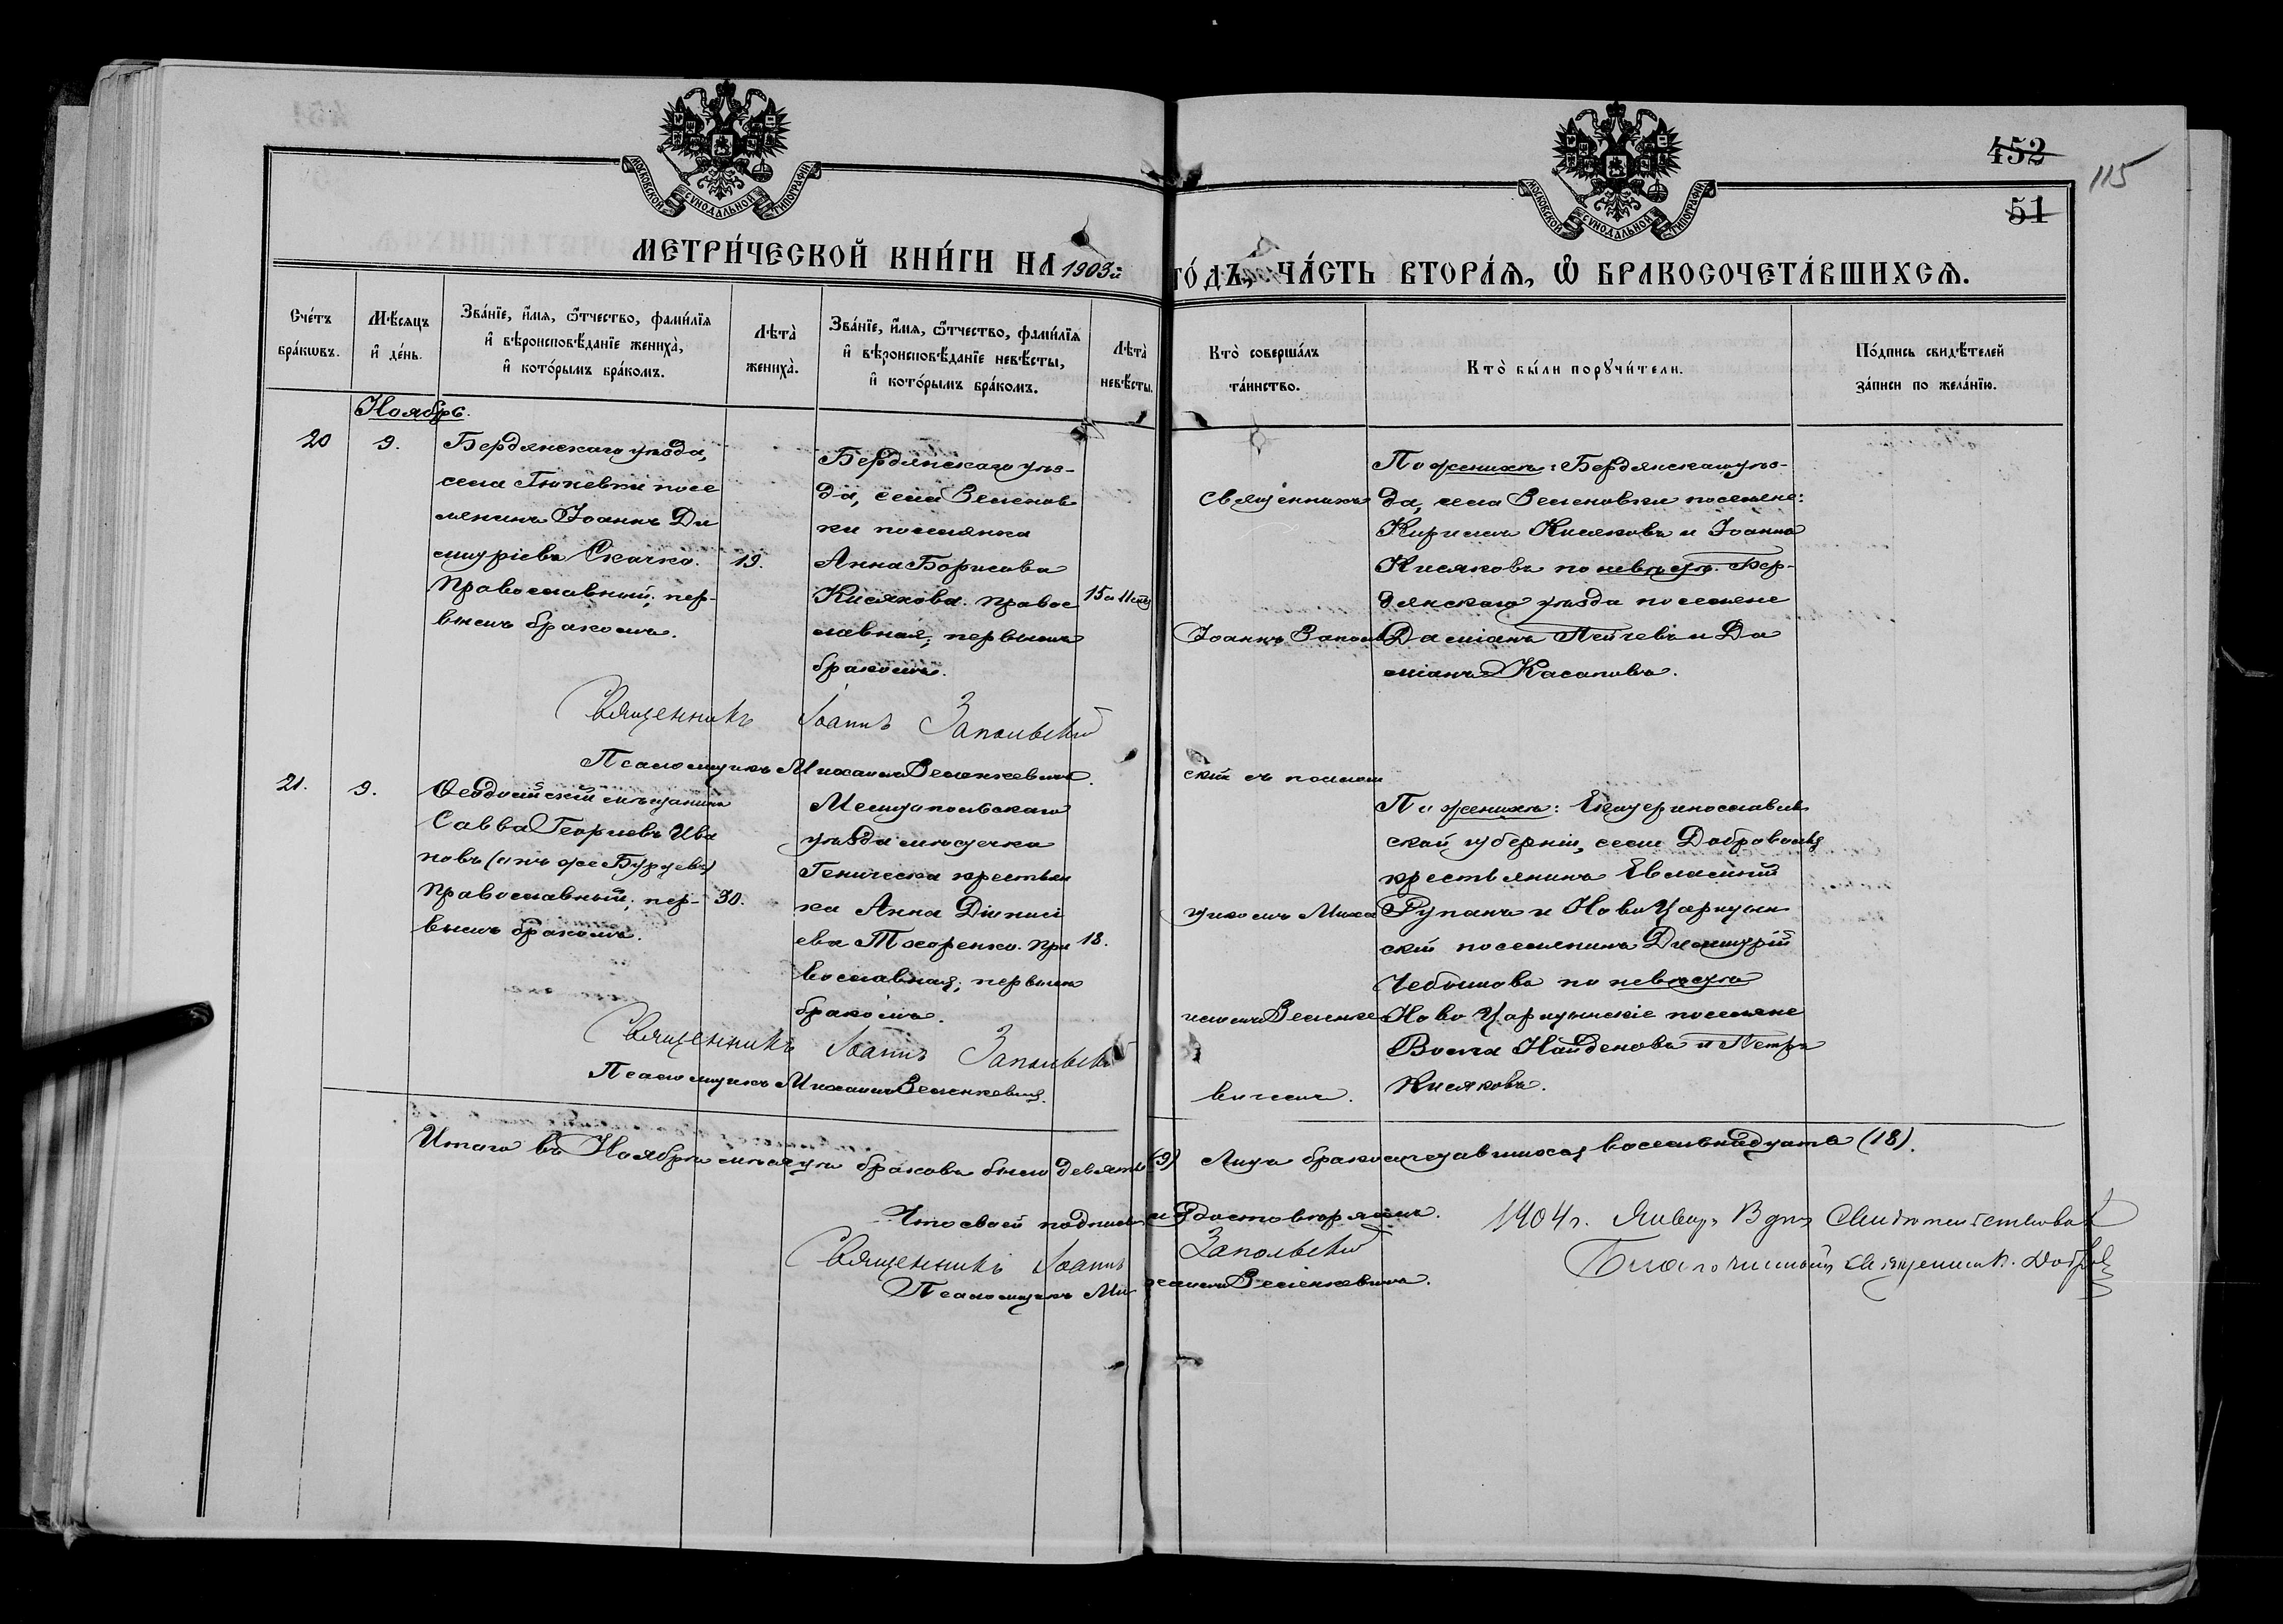 МОСКОВСКОЙ СѴНОДАЛЬНОЙ ТИПОГРАФІИ
МОСКОВСКОЙ СѴНОДАЛЬНОЙ ТИПОГРАФІИ
452
115
51
МЕТРИ́ЧЕСКОЙ КНИ́ГИ НА 1903й
ГО́ДЪ, ЧА́СТЬ ВТОРА́Ѧ, Ѡ҆ БРАКОСОЧЕТА́ВШИХСѦ.
Сче́тъ бра́кѡвъ.
Мѣ́сѧцъ и҆ де́нь.
Зва́нїе, и҆́мѧ, ѻ҆́тчество, фами́лїѧ и҆ вѣроисповѣ́данїе жениха̀, и҆ кото́рымъ бра́комъ.
Лѣта̀ жениха̀.
Зва́нїе, и҆́мѧ, ѻ҆́тчество, фами́лїѧ и҆ вѣроисповѣ́данїе невѣ́сты, и҆ кото́рымъ бра́комъ.
Лѣта̀ невѣ́сты.
Кто̀ соверша́лъ та́инство.
Кто̀ бы́ли порꙋчи́тели.
По́дпись свидѣ́телей за́писи по жела́нїю.
Ноябрь.
20
9.
Бердянскаго уѣзда,
села Гюневки посе
лянинъ Іоаннъ Ди
митріевъ Скачко.
Православный; пер-
вымъ бракомъ.
19.
Бердянскаго уѣз-
да, села Зеленов
ки поселянка
Анна Борисова
Кисякова. Правос
лавная; первымъ
бракомъ.
15 и 11
Священникъ
Іоаннъ Заполь
скій съ псалом
щикомъ Миха
иломъ Зеленке
вичемъ.
По женихѣ: Бердянскаго уѣз-
да, села Зеленовки поселяне:
Кириллъ Кисяковъ и Іоаннъ
Кисяковъ по невѣстѣ. Бер-
дянскаго уѣзда поселяне
Даміанъ Пейчевъ и Да
міанъ Касаповъ.
Священникъ Іоаннъ Запольскій
Псаломщикъ Михаилъ Зеленкевичъ.
21.
9.
Ѳеодосійскій мѣщанинъ
Савва Георгіевъ Ива
новъ (онъ же Бурдевъ)
Православный; пер-
вымъ бракомъ.
30.
Мелитопольскаго
уѣзда мѣстечка
Геническа крестьян
ка Анна Діонисі
ева Тхоренко. Пра
вославная; первымъ
бракомъ.
18.
По женихѣ: Екатеринославль
ской губерніи, села Доброволья
крестьянинъ Евлампій
Рупанъ и Ново Царицын
скій поселянинъ Димитрій
Чебановъ по невѣстѣ
Ново Царицынскіе поселяне
Вотя Найденовъ и Петръ
Кисяковъ.
Священникъ Іоаннъ Запольскій
Псаломщикъ Михаилъ Зеленкевичъ.
Итого въ Ноябрѣ мѣсяцѣ браковъ было девять (9) Лицъ бракосочетавшихся восемьнадцать (18).
Что своей подписью удостовѣряемъ.
Священникъ Іоаннъ Запольскій
Псаломщикъ Михаилъ Зеленкевичъ.
1904 г. Января дня Свидѣтельствовалъ
Благочинный Священник.